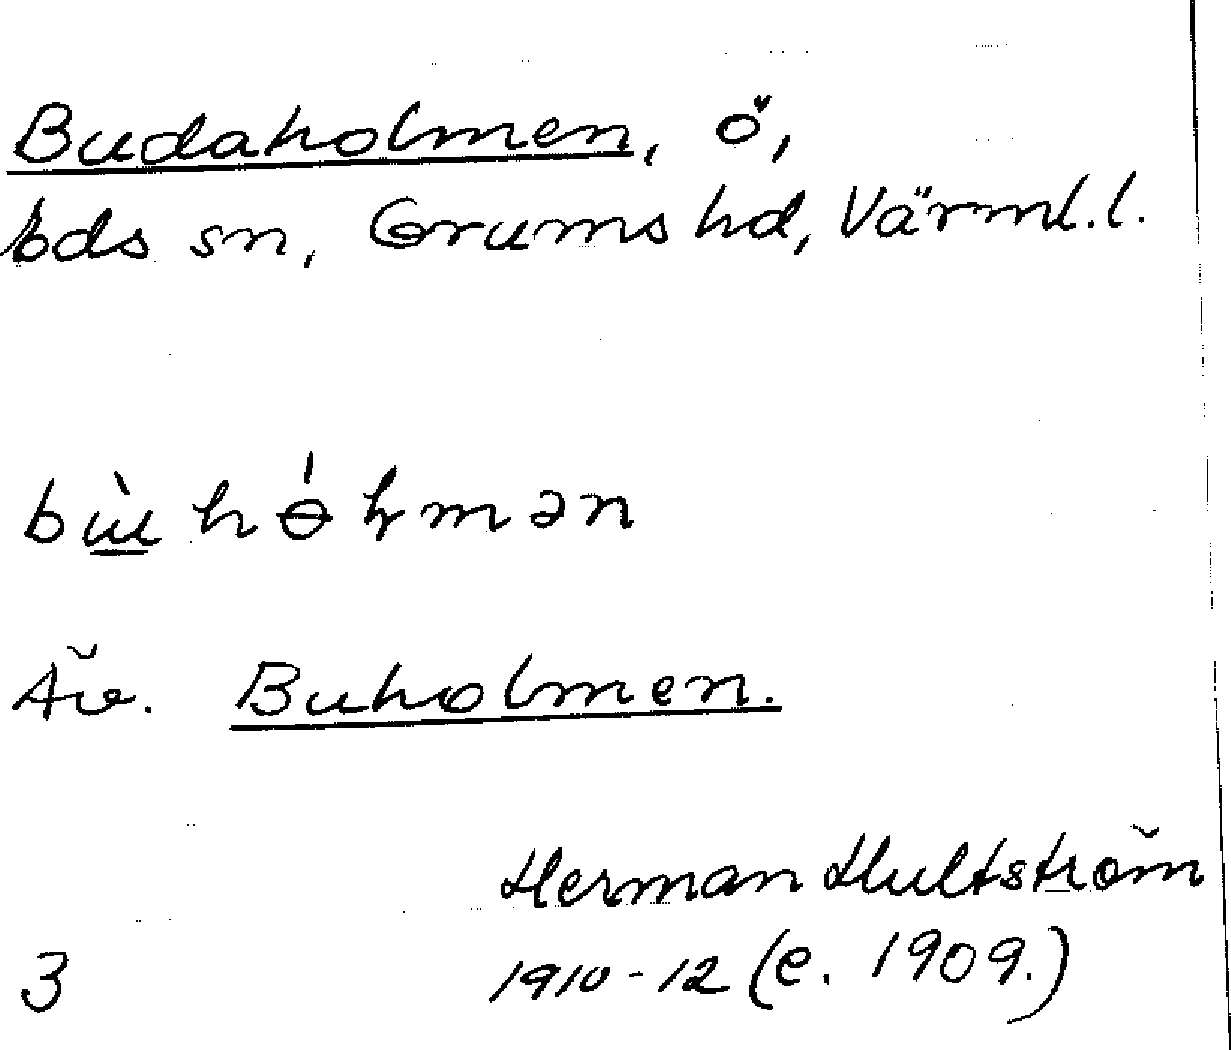 Budaholmen, ö,
bds sn, Grums hd, Värml. l.
Äv. Buholmen.
Herman Hultström
3 1910-12 (e. 1909.)